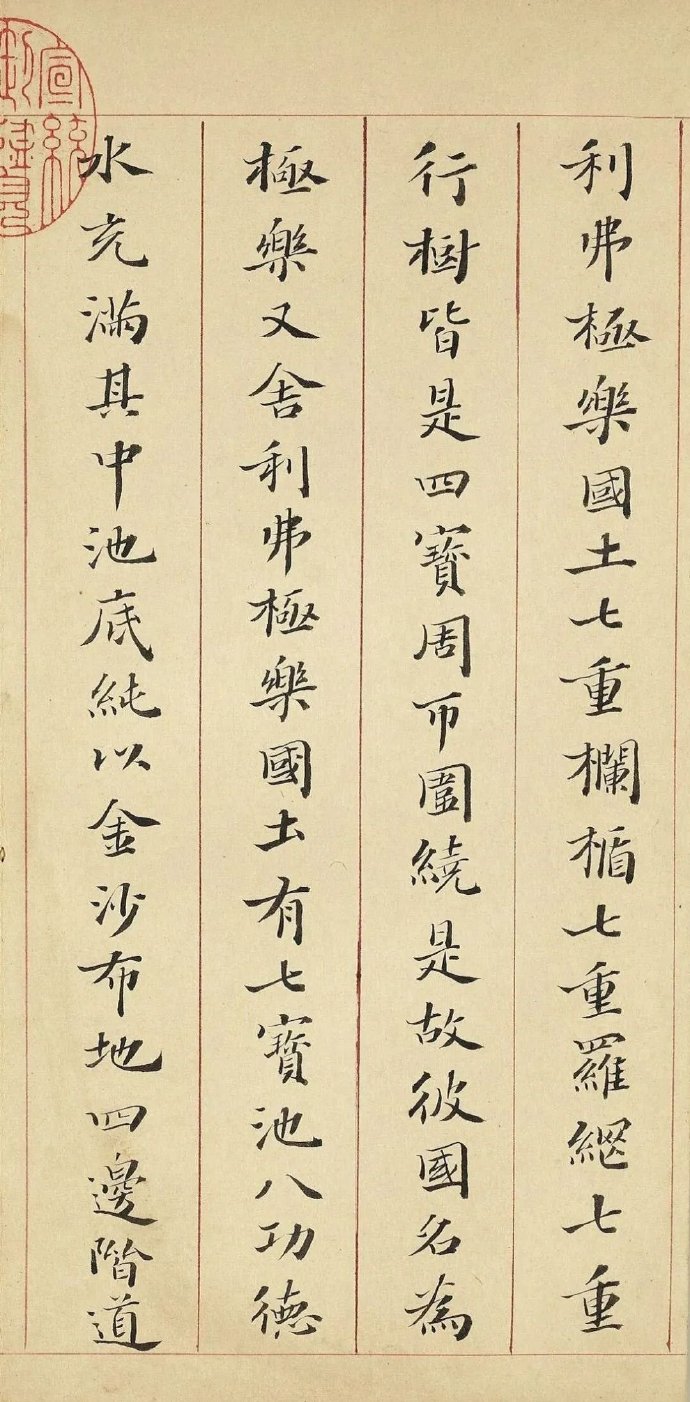 利弗極樂國土七重欄楯七重羅網七重
行樹皆是四寶周帀圍繞是故彼國名為
極樂又舍利弗極樂國土有七寶池八功德
水充滿其中池底純以金沙布地四邊階道
宣統御覽